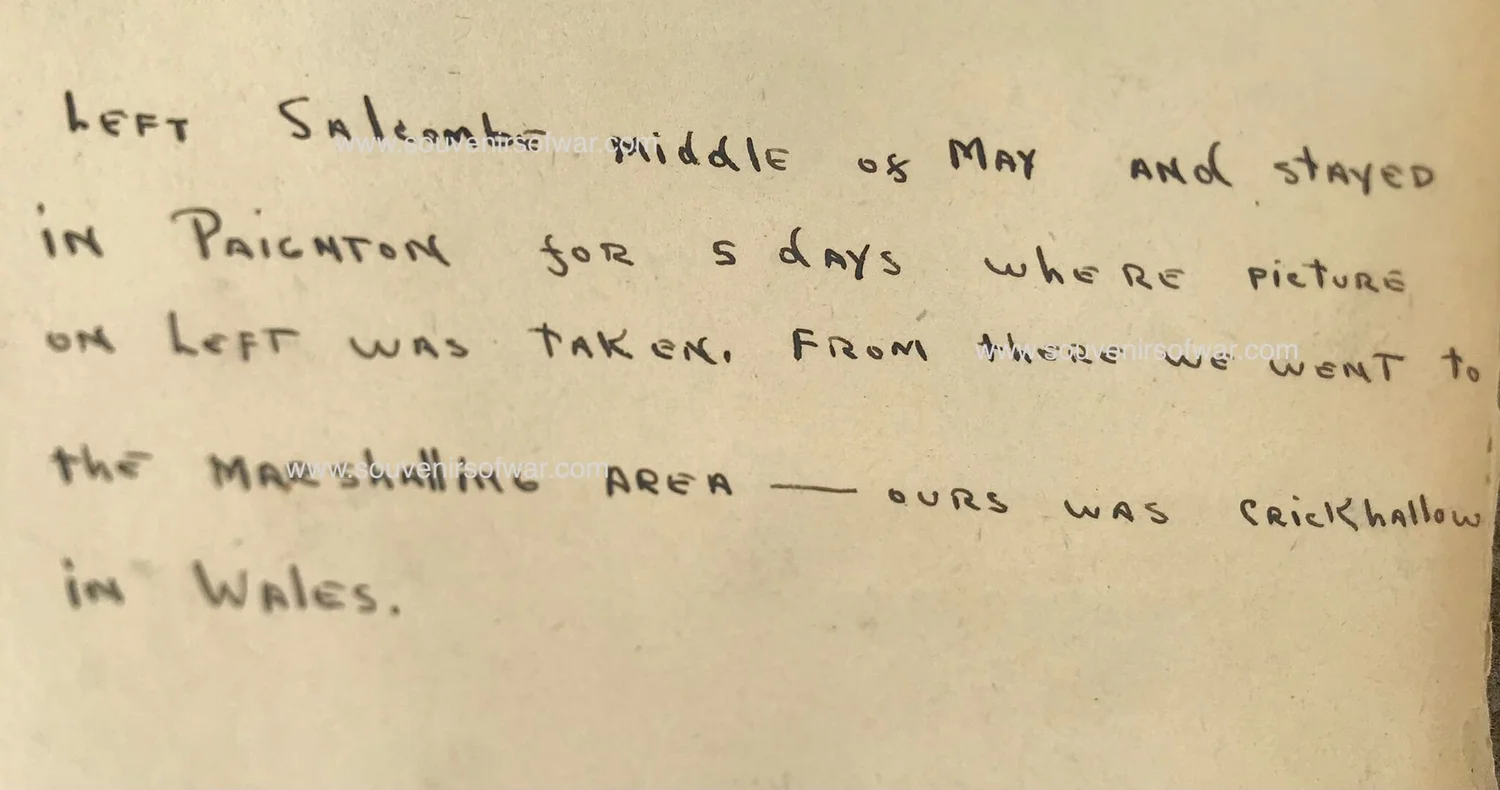 LEFT SALCOMBE MIDDLE OF MAY AND STAYED
IN PAIGNTON FOR 5 DAYS WHERE PICTURE
ON LEFT WAS TAKEN. FROM THERE WE WENT TO
THE MARSHALLING AREA — OURS WAS CRICKHALLOW
IN WALES.
www.souvenirsofwar.com
www.souvenirsofwar.com
www.souvenirsofwar.com